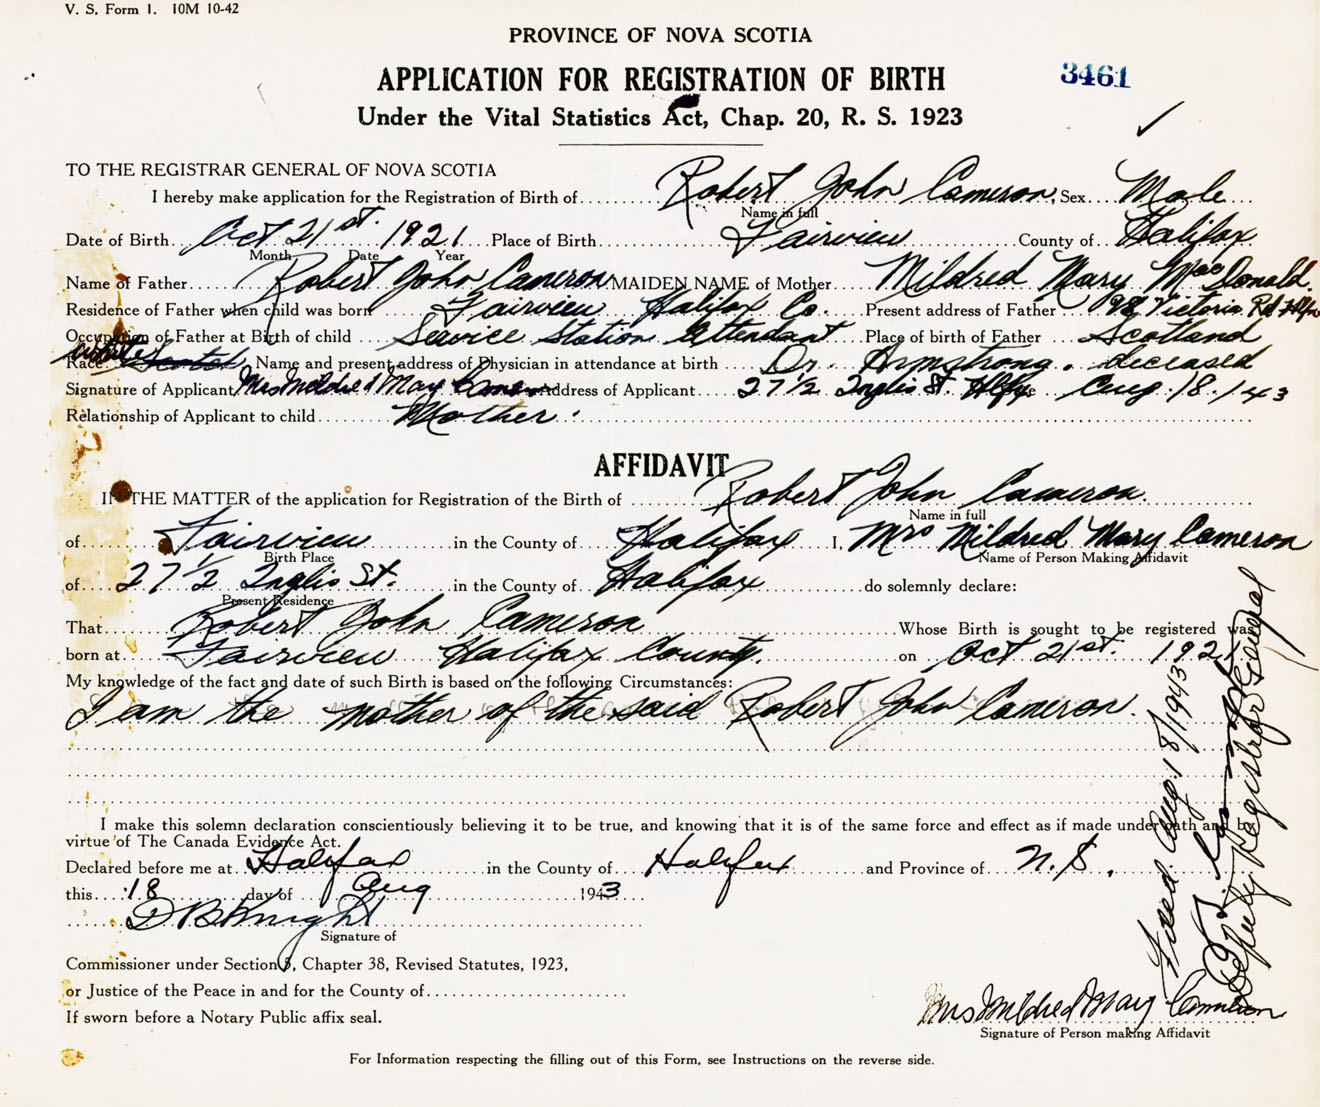 V. S. Form 1. 10M 10-42
PROVINCE OF NOVA SCOTIA
APPLICATION FOR REGISTRATION OF BIRTH
3461
Under the Vital Statistics Act, Chap. 20, R. S. 1923
TO THE REGISTRAR GENERAL OF NOVA SCOTIA
I hereby make application for the Registration of Birth of Robert John Cameron, Sex Male
Name in full
Date of Birth Oct 21st. 1921 Place of Birth Fairview County of Halifax
Month Date Year
Name of Father Robert John Cameron MAIDEN NAME of Mother Mildred Mary MacDonald
Residence of Father when child was born Fairview Halifax Co. Present address of Father 98 Victoria Rd Hlfx
Occupation of Father at Birth of child Service Station Attendant Place of birth of Father Scotland
Race White Scotch Name and present address of Physician in attendance at birth Dr Armstrong. deceased
Signature of Applicant Mrs Mildred Mary Cameron Address of Applicant 27 1/2 Inglis St. Hlfx Aug. 18. /43
Relationship of Applicant to child Mother.
AFFIDAVIT
IN THE MATTER of the application for Registration of the Birth of Robert John Cameron
Name in full
of Fairview in the County of Halifax I, Mrs Mildred Mary Cameron
Birth Place Name of Person Making Affidavit
of 27 1/2 Inglis St. in the County of Halifax do solemnly declare:
Present Residence
That Robert John Cameron Whose Birth is sought to be registered was
born at Fairview Halifax County. on Oct 21st. 1921
My knowledge of the fact and date of such Birth is based on the following Circumstances:
I am the mother of the said Robert John Cameron.
I make this solemn declaration conscientiously believing it to be true, and knowing that it is of the same force and effect as if made under oath and by
virtue of The Canada Evidence Act.
Declared before me at Halifax in the County of Halifax and Province of N.S.
this 18 day of Aug 1943
D B Knight
Signature of
Commissioner under Section 5, Chapter 38, Revised Statutes, 1923,
or Justice of the Peace in and for the County of
If sworn before a Notary Public affix seal.
Mrs Mildred Mary Cameron
Signature of Person making Affidavit
For Information respecting the filling out of this Form, see Instructions on the reverse side.
Filed. Aug. 18/1943
Deputy Registrar General